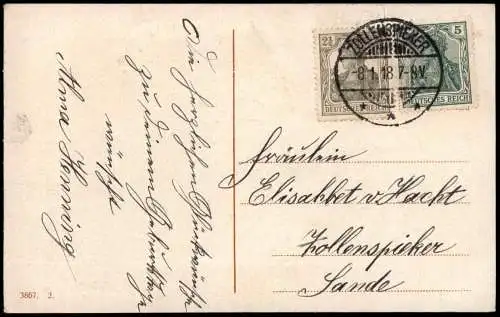 Die herzlichen Glückwünsche
zu deinem Geburtstage
wünscht
Alma Henning
3867. 2.
2½
DEUTSCHES REICH
5
DEUTSCHES REICH
ZOLLENSPIEKER
-8.1.18.7-8V.
Fräulein
Elisahbet v. Hacht
Zollenspieker
Sande